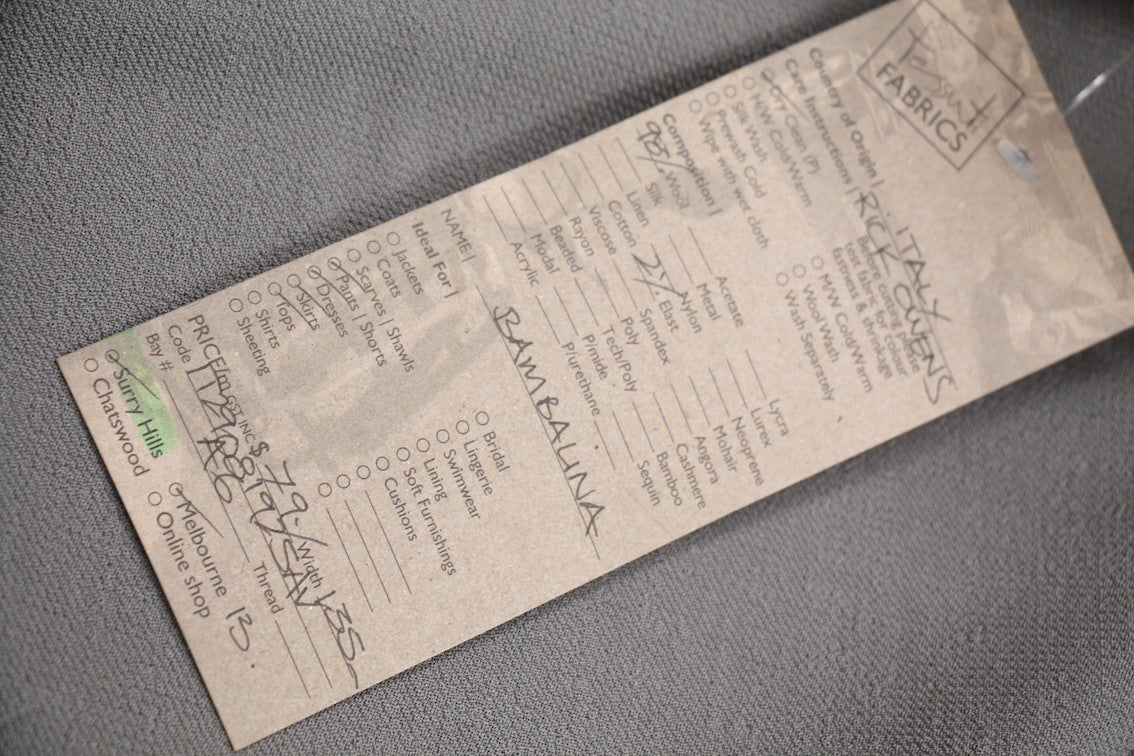 Tessuti
FABRICS
Country of Origin | ITALY
RICK OWENS
Care Instructions | Before cutting please
test fabric for colour
fastness & shrinkage
Dry Clean (P)
H/W Cold/Warm M/W Cold/Warm
Silk Wash Wool Wash
Prewash Cold Wash Separately
Wipe with wet cloth
Composition |
98% Wool Acetate Lycra
Silk Metal Lurex
Linen Nylon Neoprene
Cotton 2% Elast Mohair
Viscose Spandex Angora
Rayon Poly Cashmere
Beaded Tech/Poly Bamboo
Modal P/mide Sequin
Acrylic P/urethane
NAME | BAMBALINA
Ideal For |
Jackets Bridal
Coats Lingerie
Scarves | Shawls Swimwear
Pants | Shorts Lining
Dresses Soft Furnishings
Skirts Cushions
Tops
Shirts
Sheeting
PRICE/m GST INC $79. Width 135
Code | Thread
Bay #
Surry Hills Melbourne 13.
Chatswood Online shop